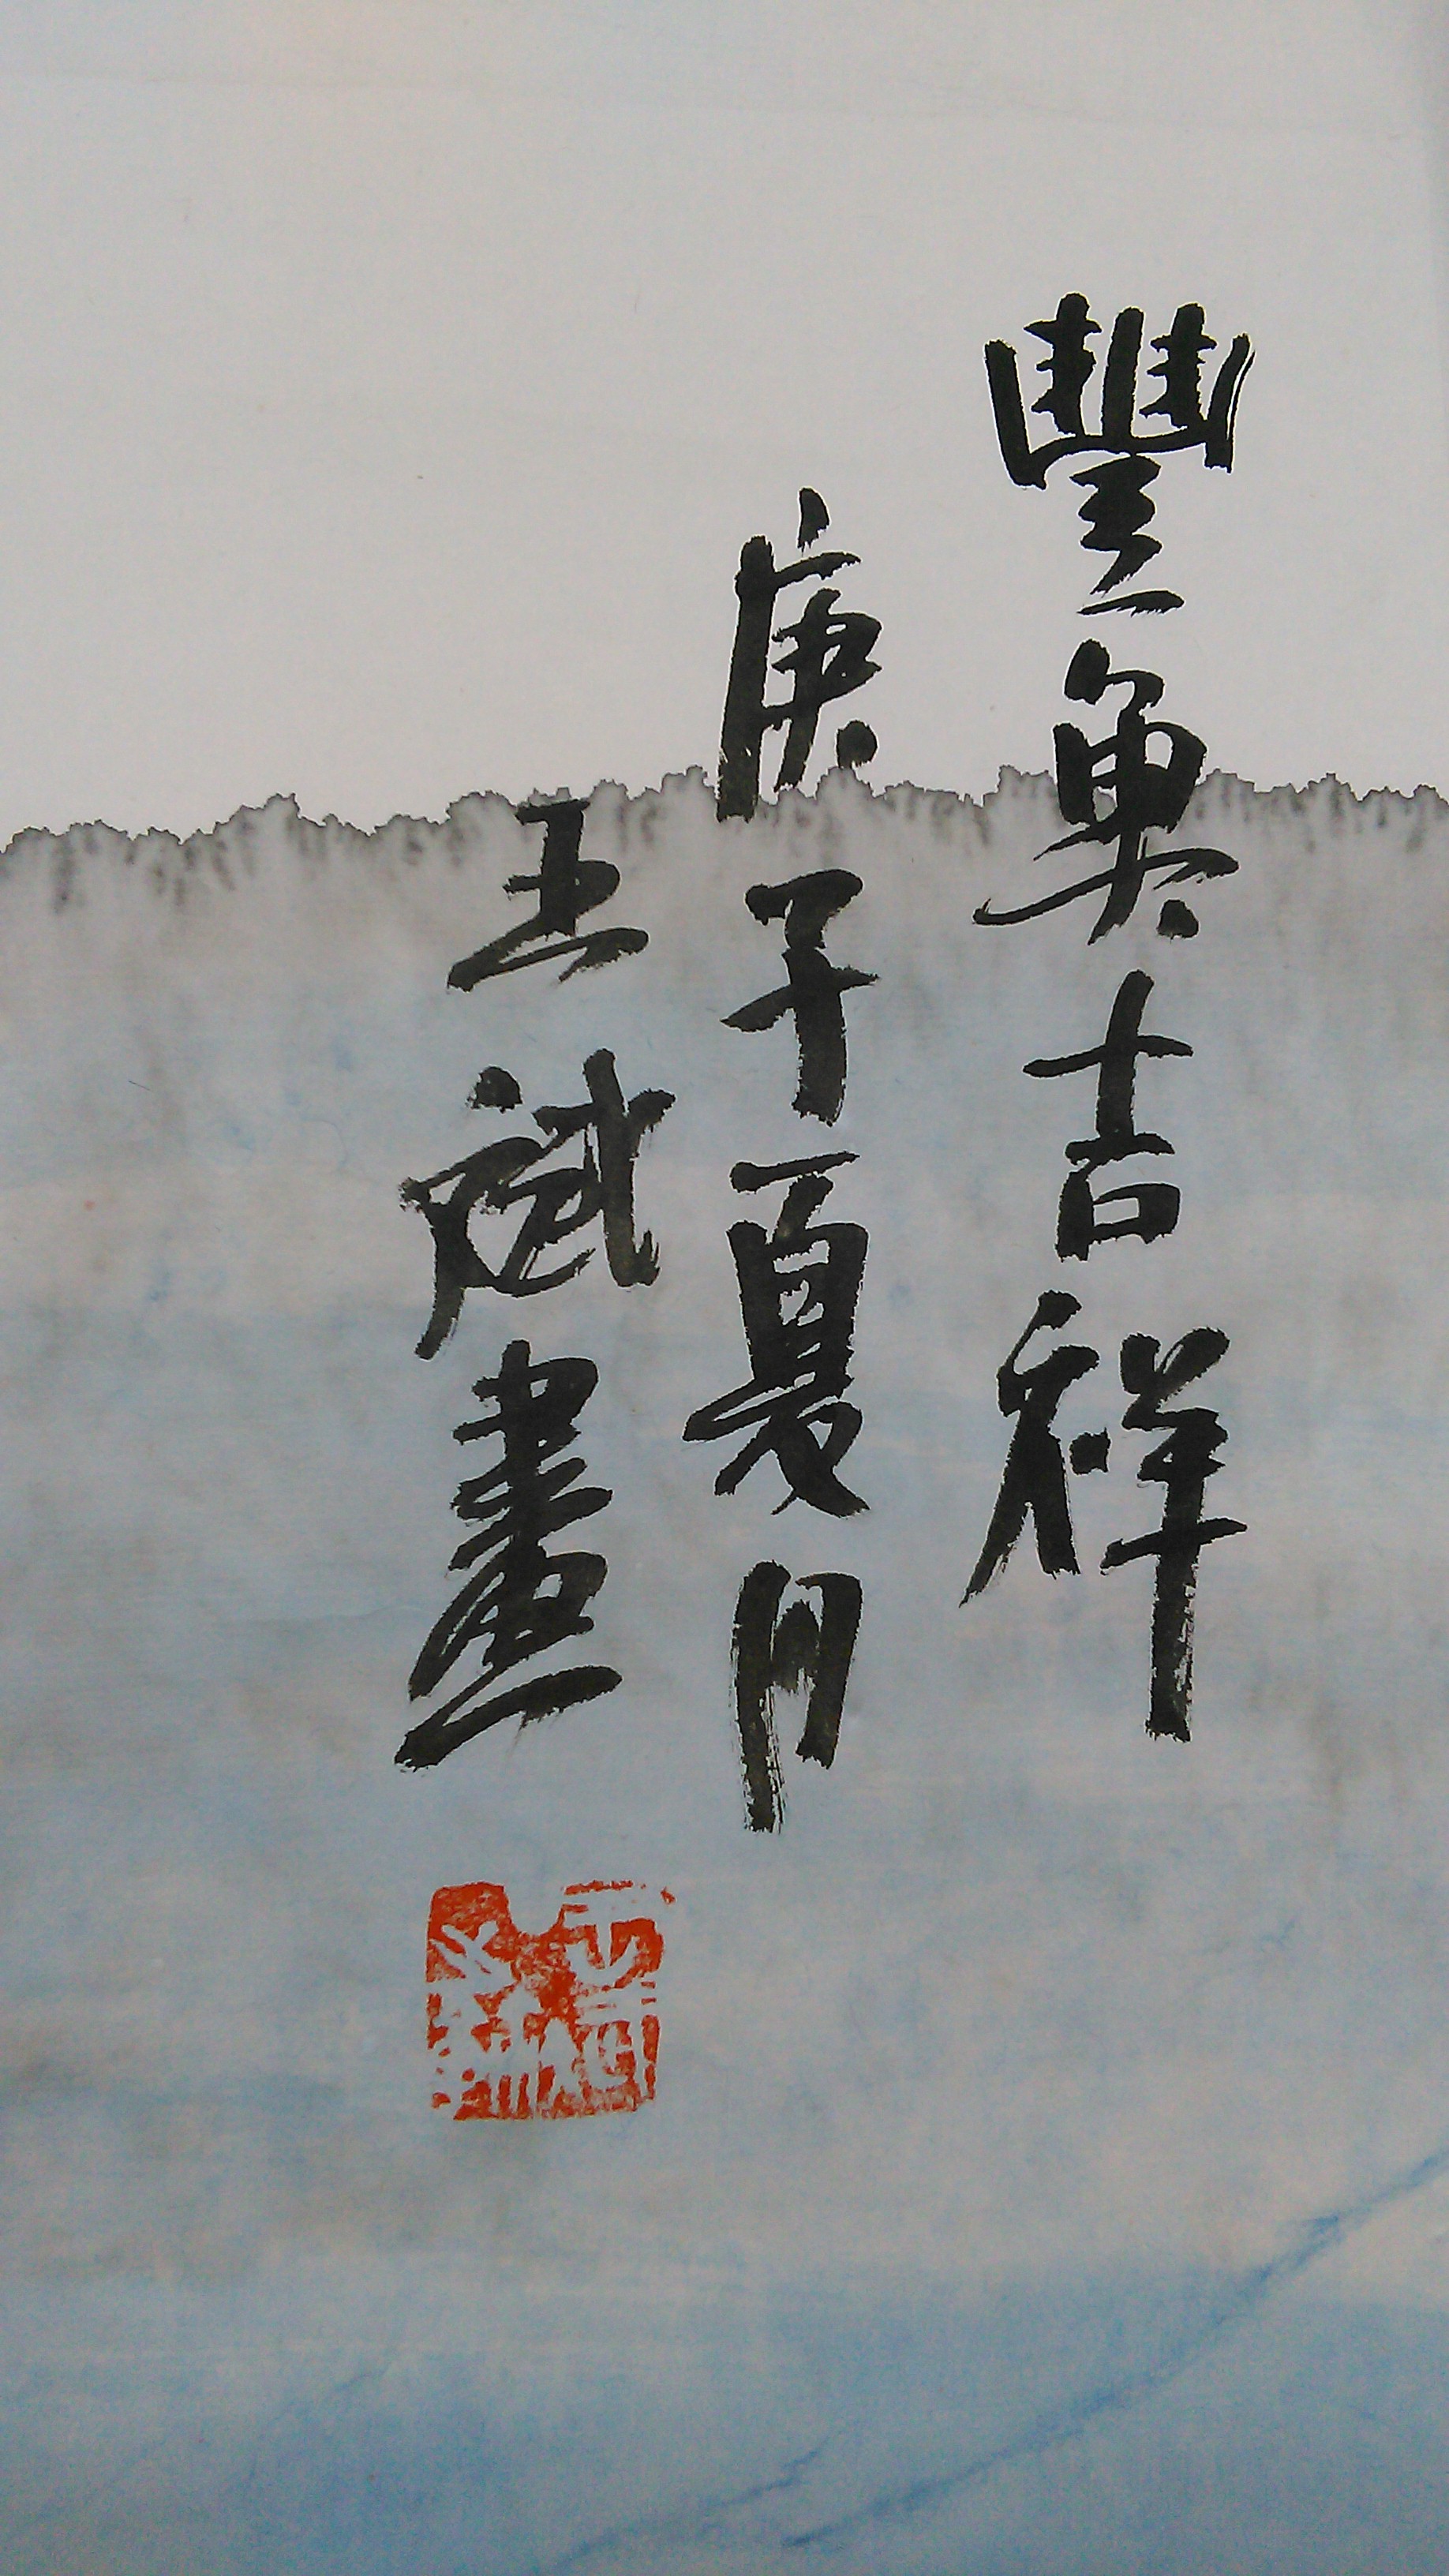 豐魚吉祥
庚子夏月
王斌畫